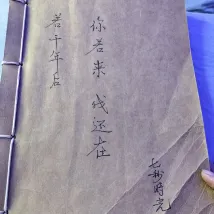 若干年后
你若来 我还在
七秒时光